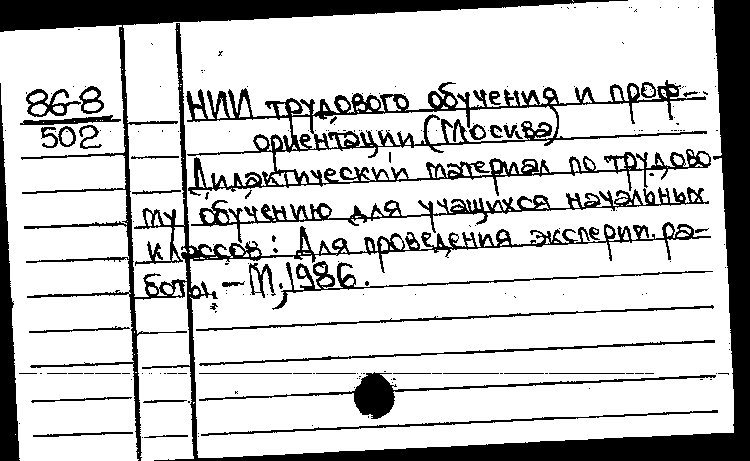 86-8
502
НИИ трудового обучения и проф-
ориентации (Москва)
Дидактический материал по трудово-
му обучению для учащихся начальных
классов: Для проведения эксперим. ра-
боты. – М., 1986.